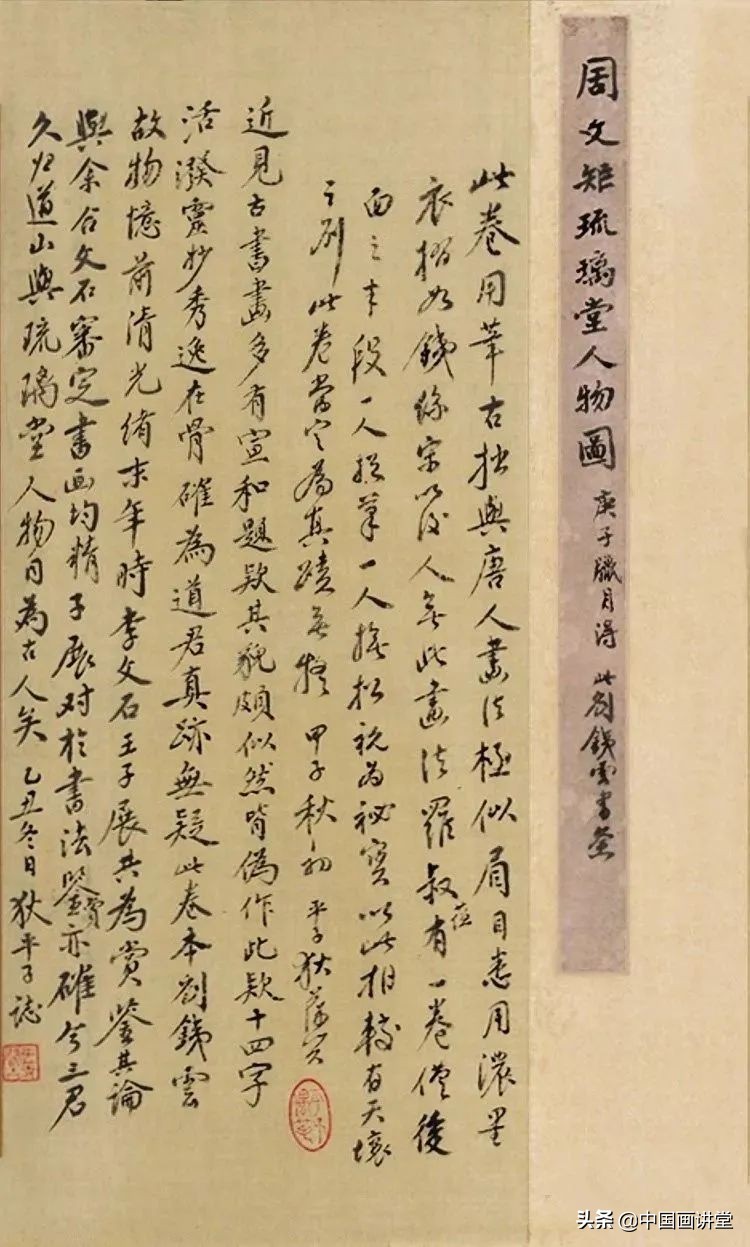 周文矩琉璃堂人物圖 庚子臘月得 此劉鐵雲書簽
此卷用筆古拙與唐人畫法極似眉目悉用濃墨
衣摺如鐵線宋以後人無此畫法羅叔有一卷僅後
面之半段一人操筆一人撫松詫為祕寶以此相較有天壤
之別此卷當定為真蹟無疑 甲子秋初 平子狄葆賢
近見古書畫多有宣和題款其貌頗似然皆偽作此款十四字
活潑靈妙秀逸在骨確為道君真跡無疑此卷本劉鐵雲
故物憶前清光緒末年時李文石王子展共為賞鑒其論
與余合文石審定書画均精子展对於書法鑒賞亦確今三君
久归道山與琉璃堂人物同為古人矣 乙丑冬日狄平子誌
头条 @中国画讲堂